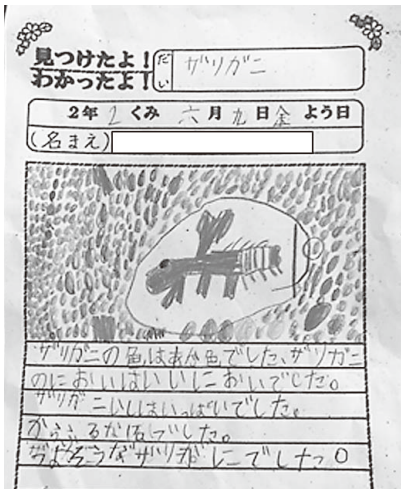 見つけたよ！
わかったよ！
だい
ザリガニ
2年2くみ 六月九日金よう日
(名まえ)
ザリガニの色はあか色でした、ザリガニ
のにおいはいいにおいでした。
ザリガニ いっぱいでした。
からふるな でした。
ザリガニでした。